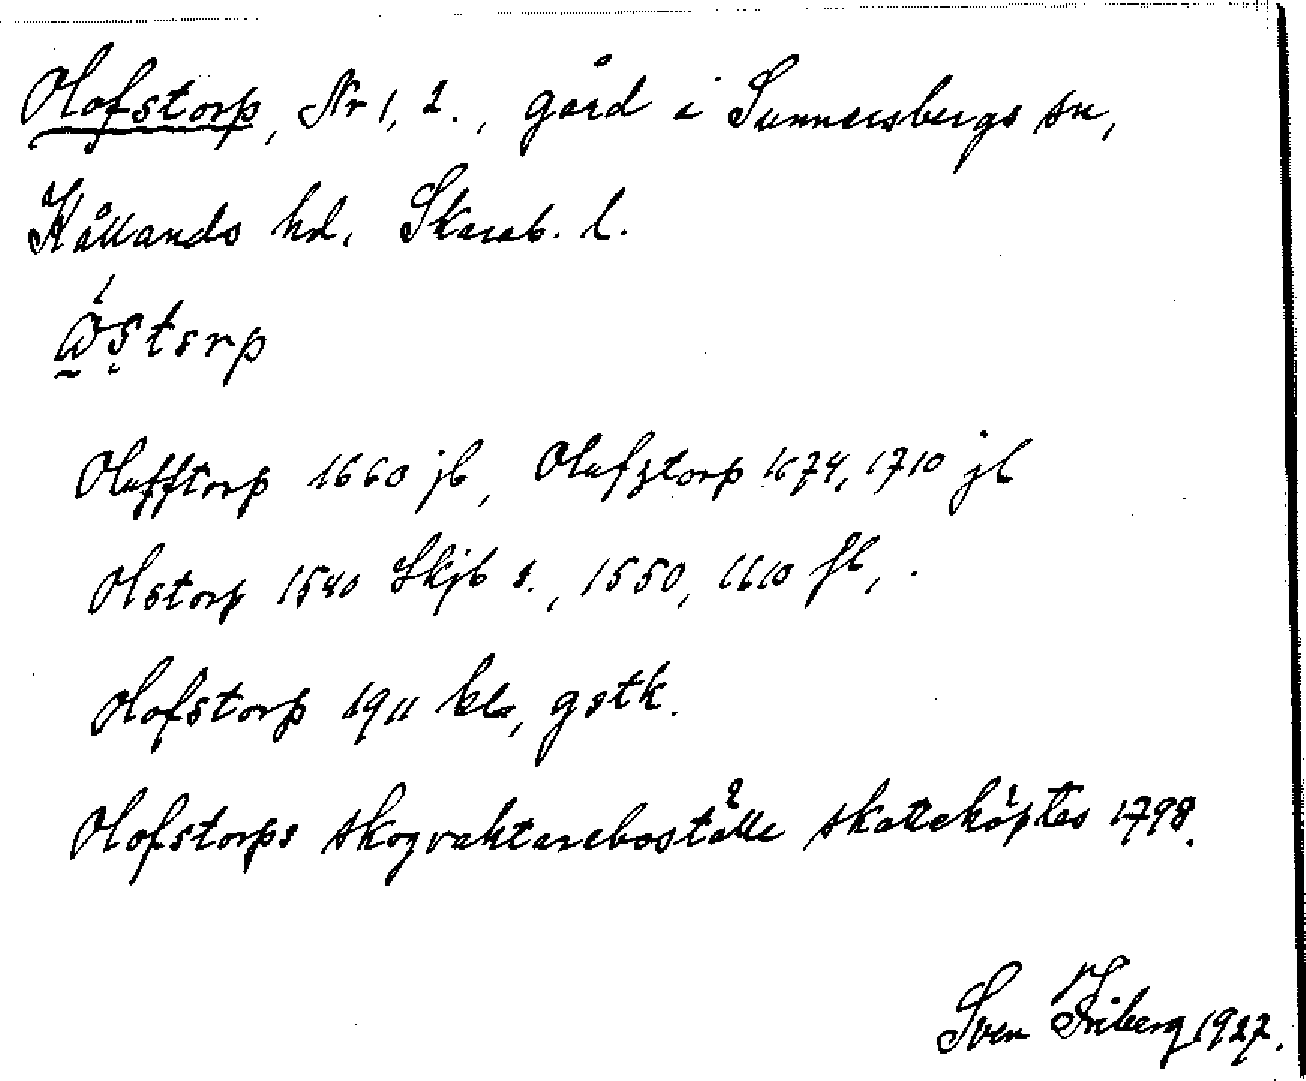 Olofstorp, Nr 1, 2., gård i Sunnersbergs sn,
Kållands hd, Skarab. l.
ɷ́storp
Olufftorp 1660 jb, Olufztorp 1674, 1710 jb
Olstorp 1540 Skjb s., 1550, 1610 jb,.
Olofstorp 1911 kb, gstk.
Olofstorps skogvaktareboställe skatteköptes 1798.
Sven Friberg 1927.